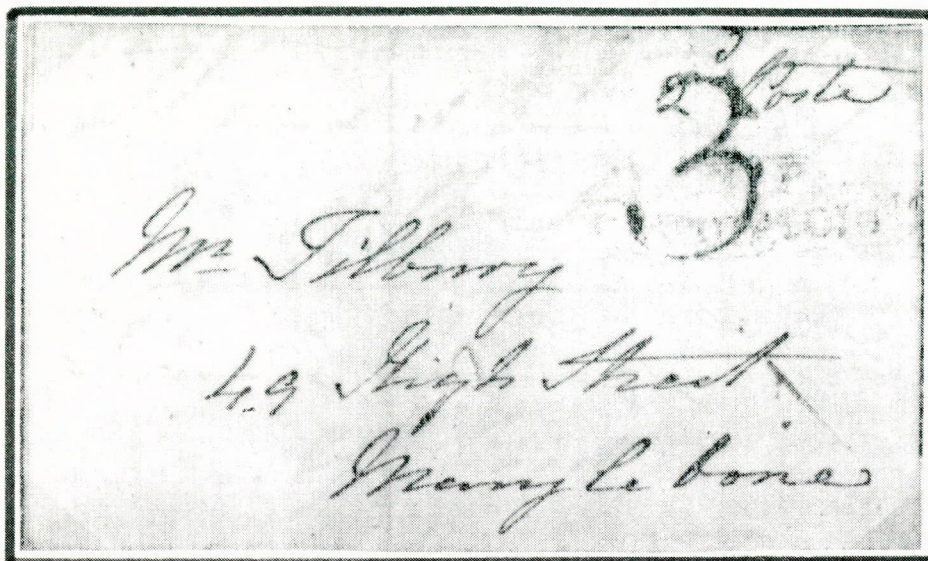 2 Post
3
Mr Tilbury
49 High Street
Mary le bone